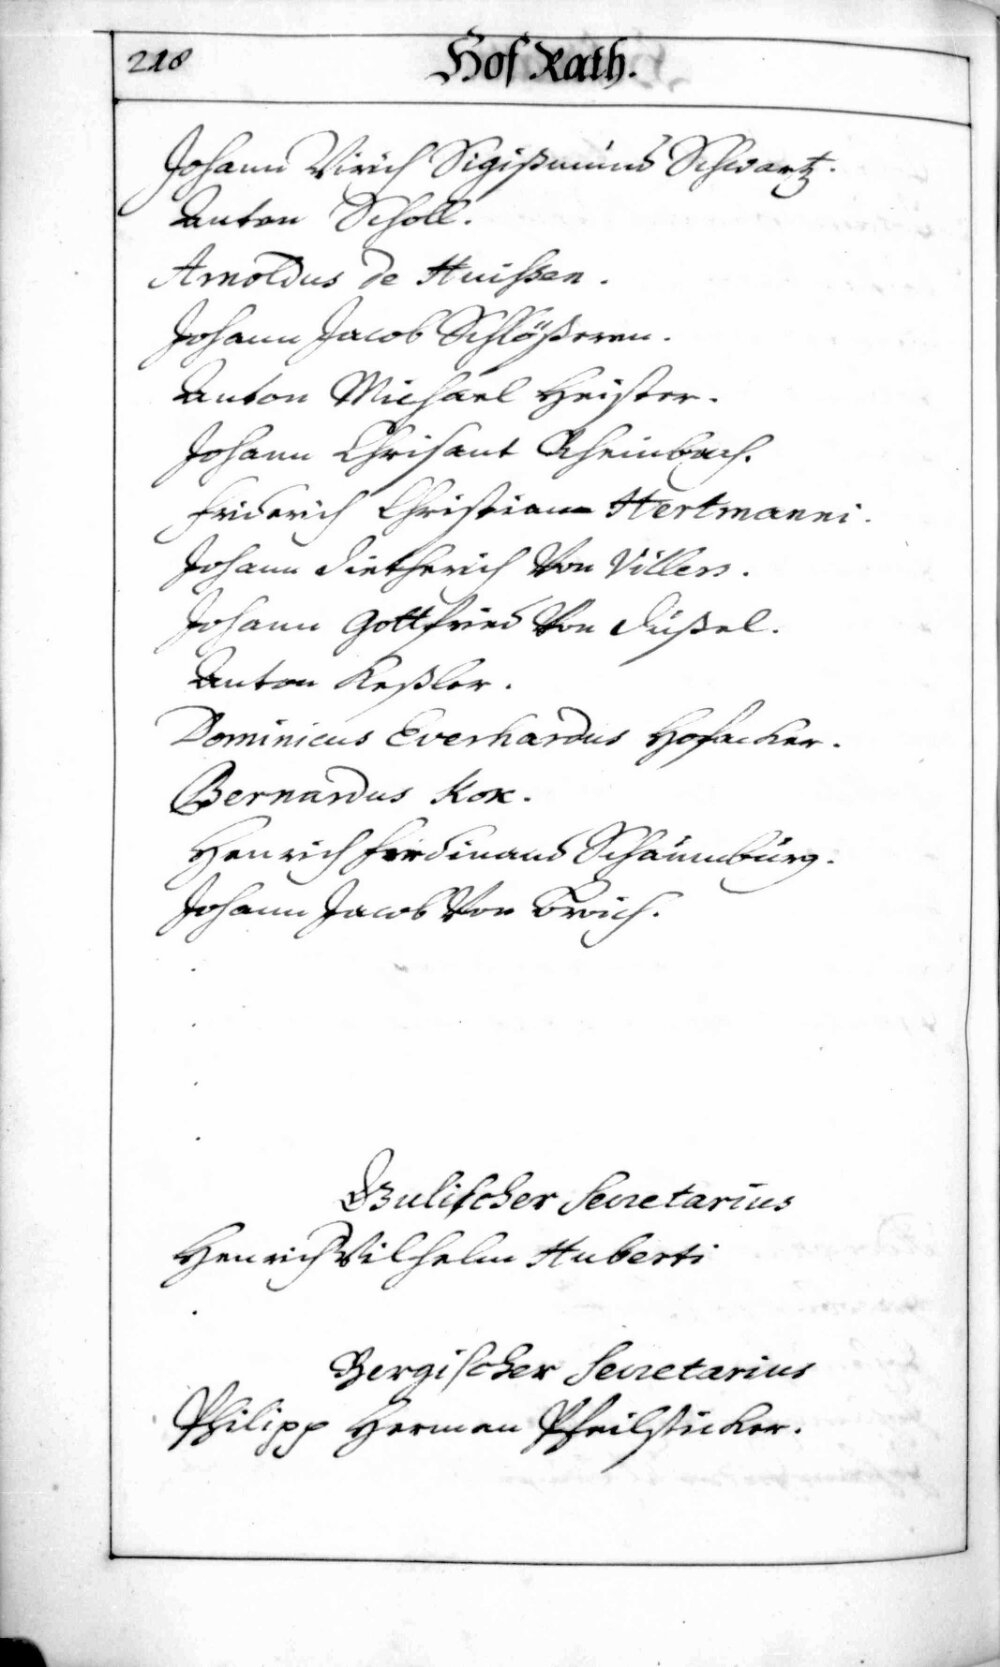 218
Hof Rath.
Johann Ulrich Sigißmund Schwartz.
Anton Scholl.
Arnoldus de Huißen.
Johann Jacob Schlößeren.
Anton Michael Heister.
Johann Chrisant Rheinbach.
Friderich Christian Hertmanni.
Johann Dietherich Von Villers.
Johann Gottfried Von Düßel.
Anton Keßler.
Dominicus Everhardus Hofacker.
Bernardus Kox.
Henrich Ferdinand Schaumburg.
Johann Jacob Von Broich.
Gulischer Secretarius
Henrich Wilhelm Huberti
Bergischer Secretarius
Philipp Herman Pfeilsticker.